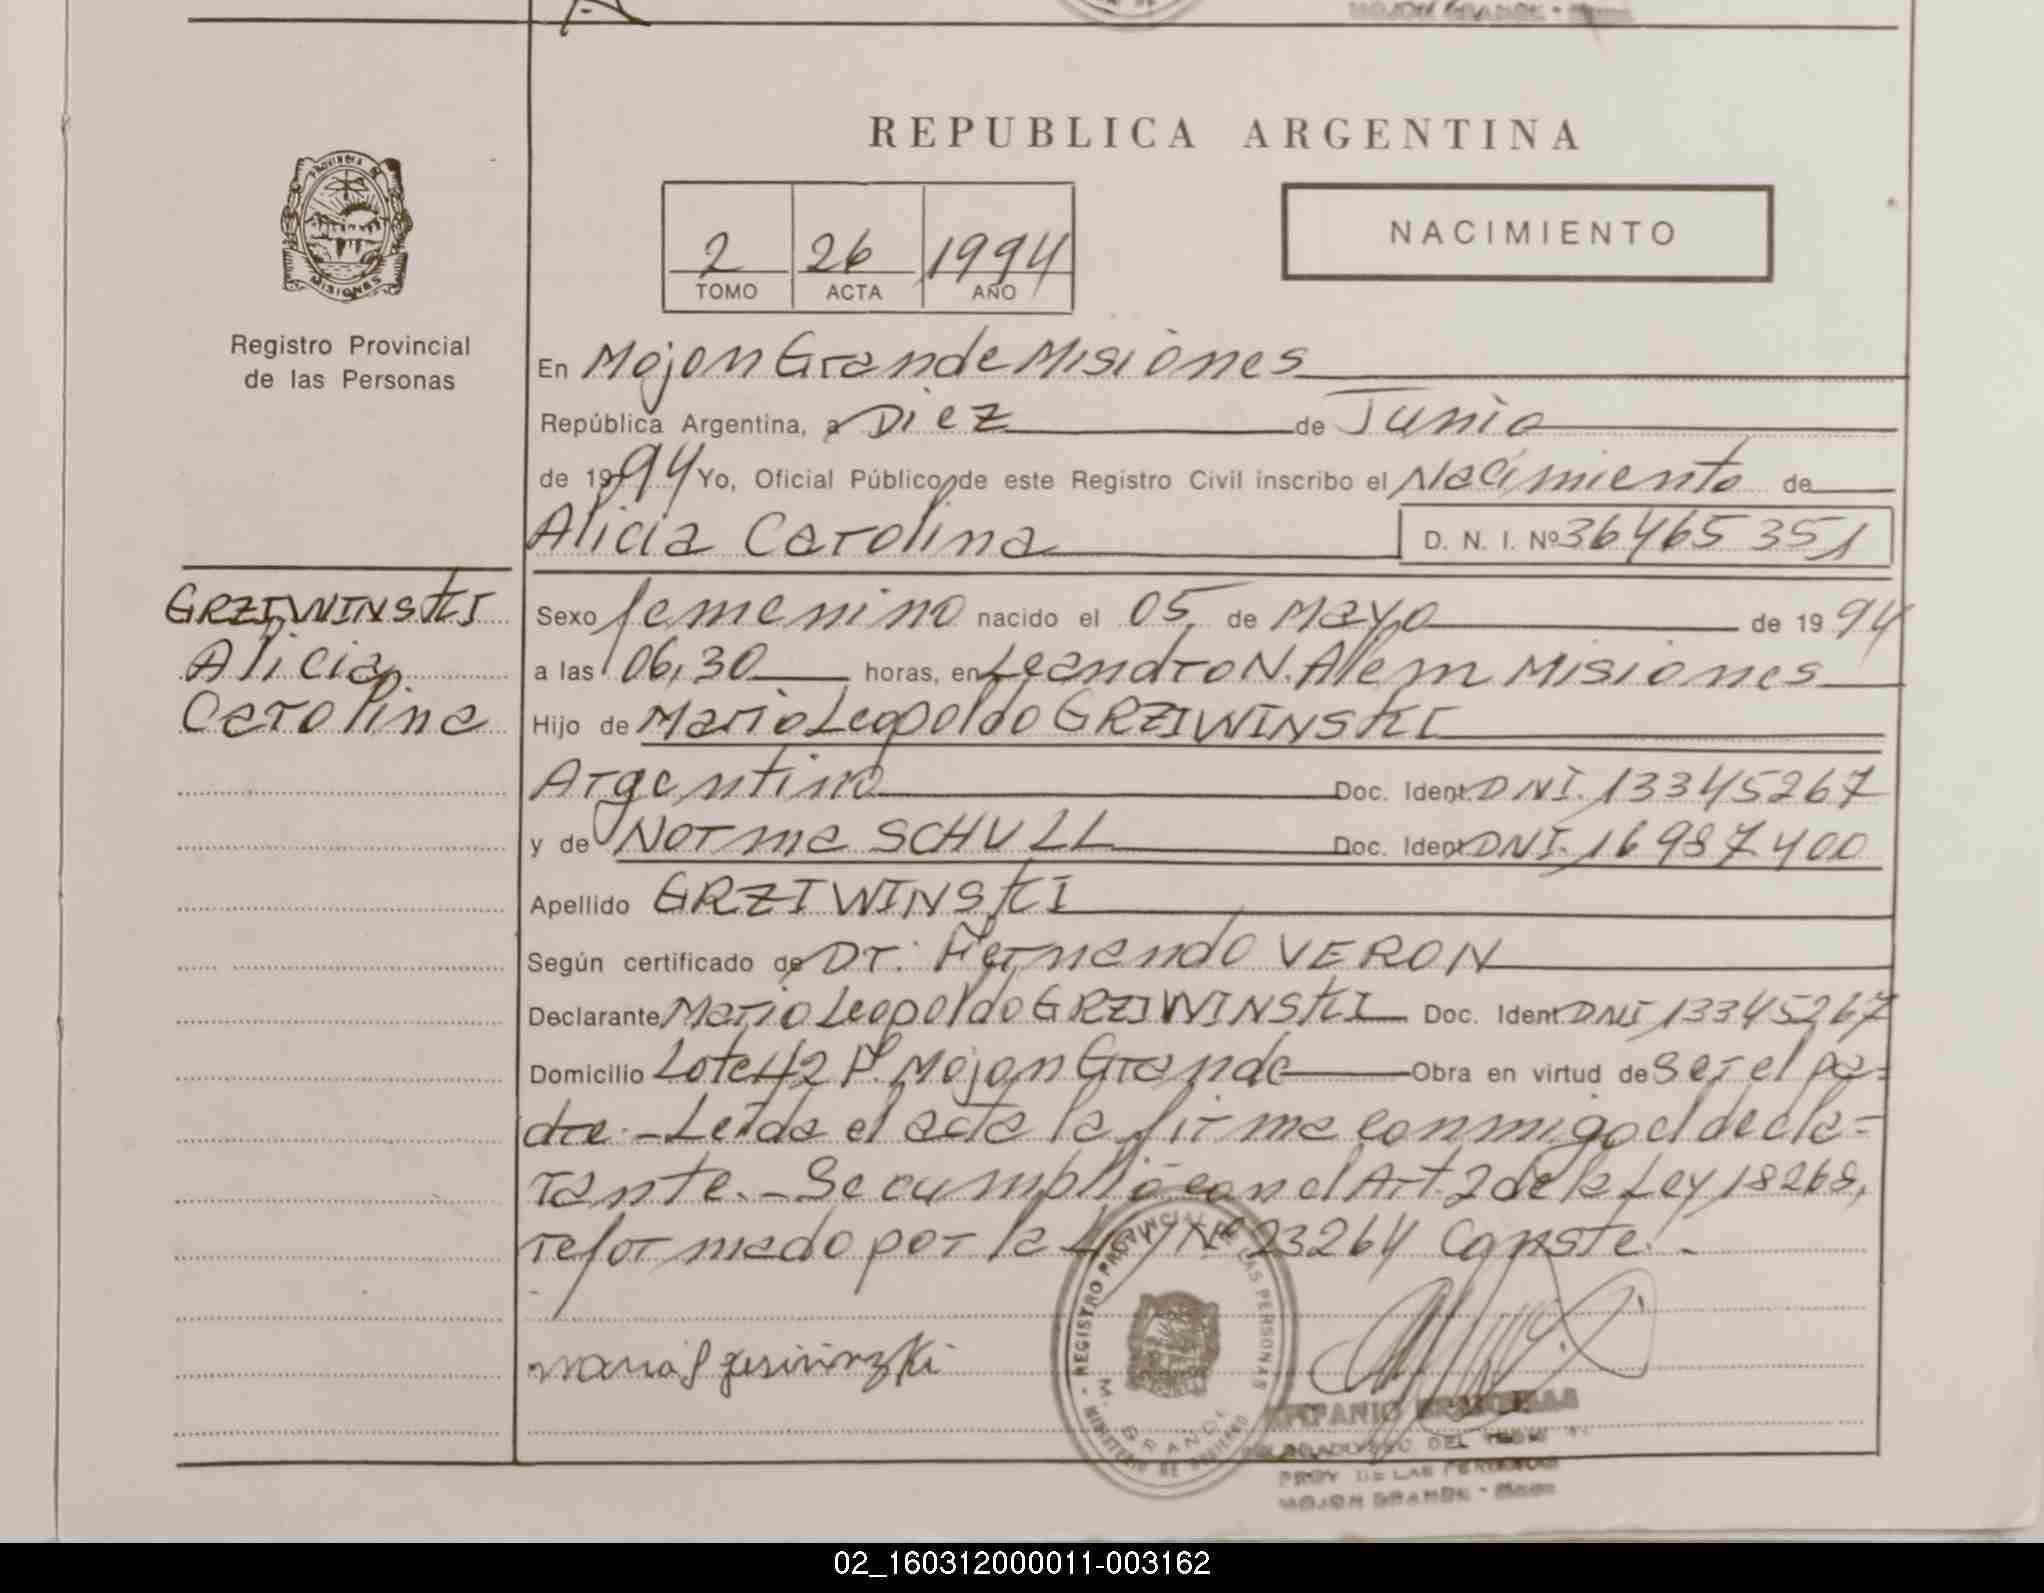 MOJON GRANDE -
REPUBLICA ARGENTINA
PROVINCIA DE
MISIONES
Registro Provincial
de las Personas
2 26 1994
TOMO ACTA AÑO
NACIMIENTO
En Mojon Grande Misiones
República Argentina, a Diez de Junio
de 1994 Yo, Oficial Público de este Registro Civil inscribo el Nacimiento de
Alicia Carolina D. N. I. Nº 36465351
GRZIWINSKI
Alicia
Carolina
Sexo femenino nacido el 05 de Mayo de 1994
a las 06,30 horas, en Leandro N. Alem Misiones
Hijo de Mario Leopoldo GRZIWINSKI
Argentino Doc. Ident. DNI. 13345267
y de Norma SCHULL Doc. Ident. DNI. 16987400
Apellido GRZIWINSKI
Según certificado de Dr. Fernando VERON
Declarante Mario Leopoldo GRZIWINSKI Doc. Ident. DNI 13345267
Domicilio Lote 42 Mojon Grande Obra en virtud de ser el pa=
dre.- Leida el acta la firma conmigo el decla=
rante.- Se cumplió con el Art. 2 de la Ley 18268,
reformado por la Ley Nº 23264 Conste.-
REGISTRO PROVINCIAL DE LAS PERSONAS
M. GRANDE
MINISTERIO DE GOBIERNO
DEL
PROV DE LAS PERSONAS
MOJON GRANDE -
02_160312000011-003162